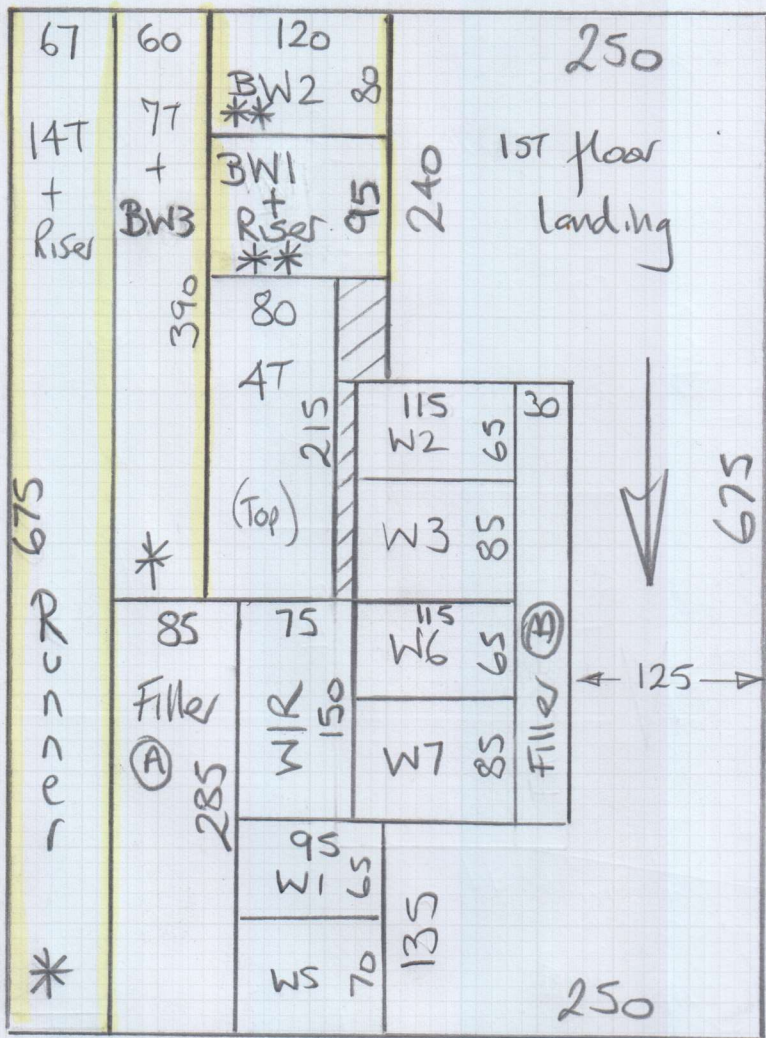 67
14T
+
Riser
675
Runner
*
60
7T
+
BW3
390
*
120
BW2 80
**
BW1
+
Riser
**
95
240
80
4T
215
(Top)
250
1ST floor
landing
115
W2 65
W3 85
115
W6 65
W7 85
30
Filler B
125
675
85
Filler
A
285
75
W/R
150
95
W1 65
W5 70
135
250